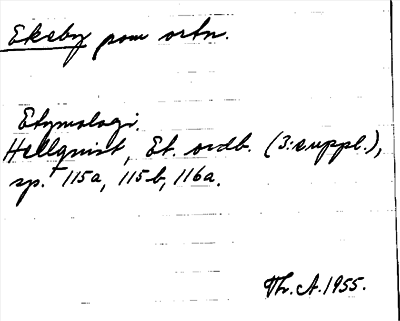 Eksby som ortn.
Etymologi.
Hellquist, Et. ordb. (3:suppl.),
sp. 115a, 115b, 116a.
Th. A. 1955.